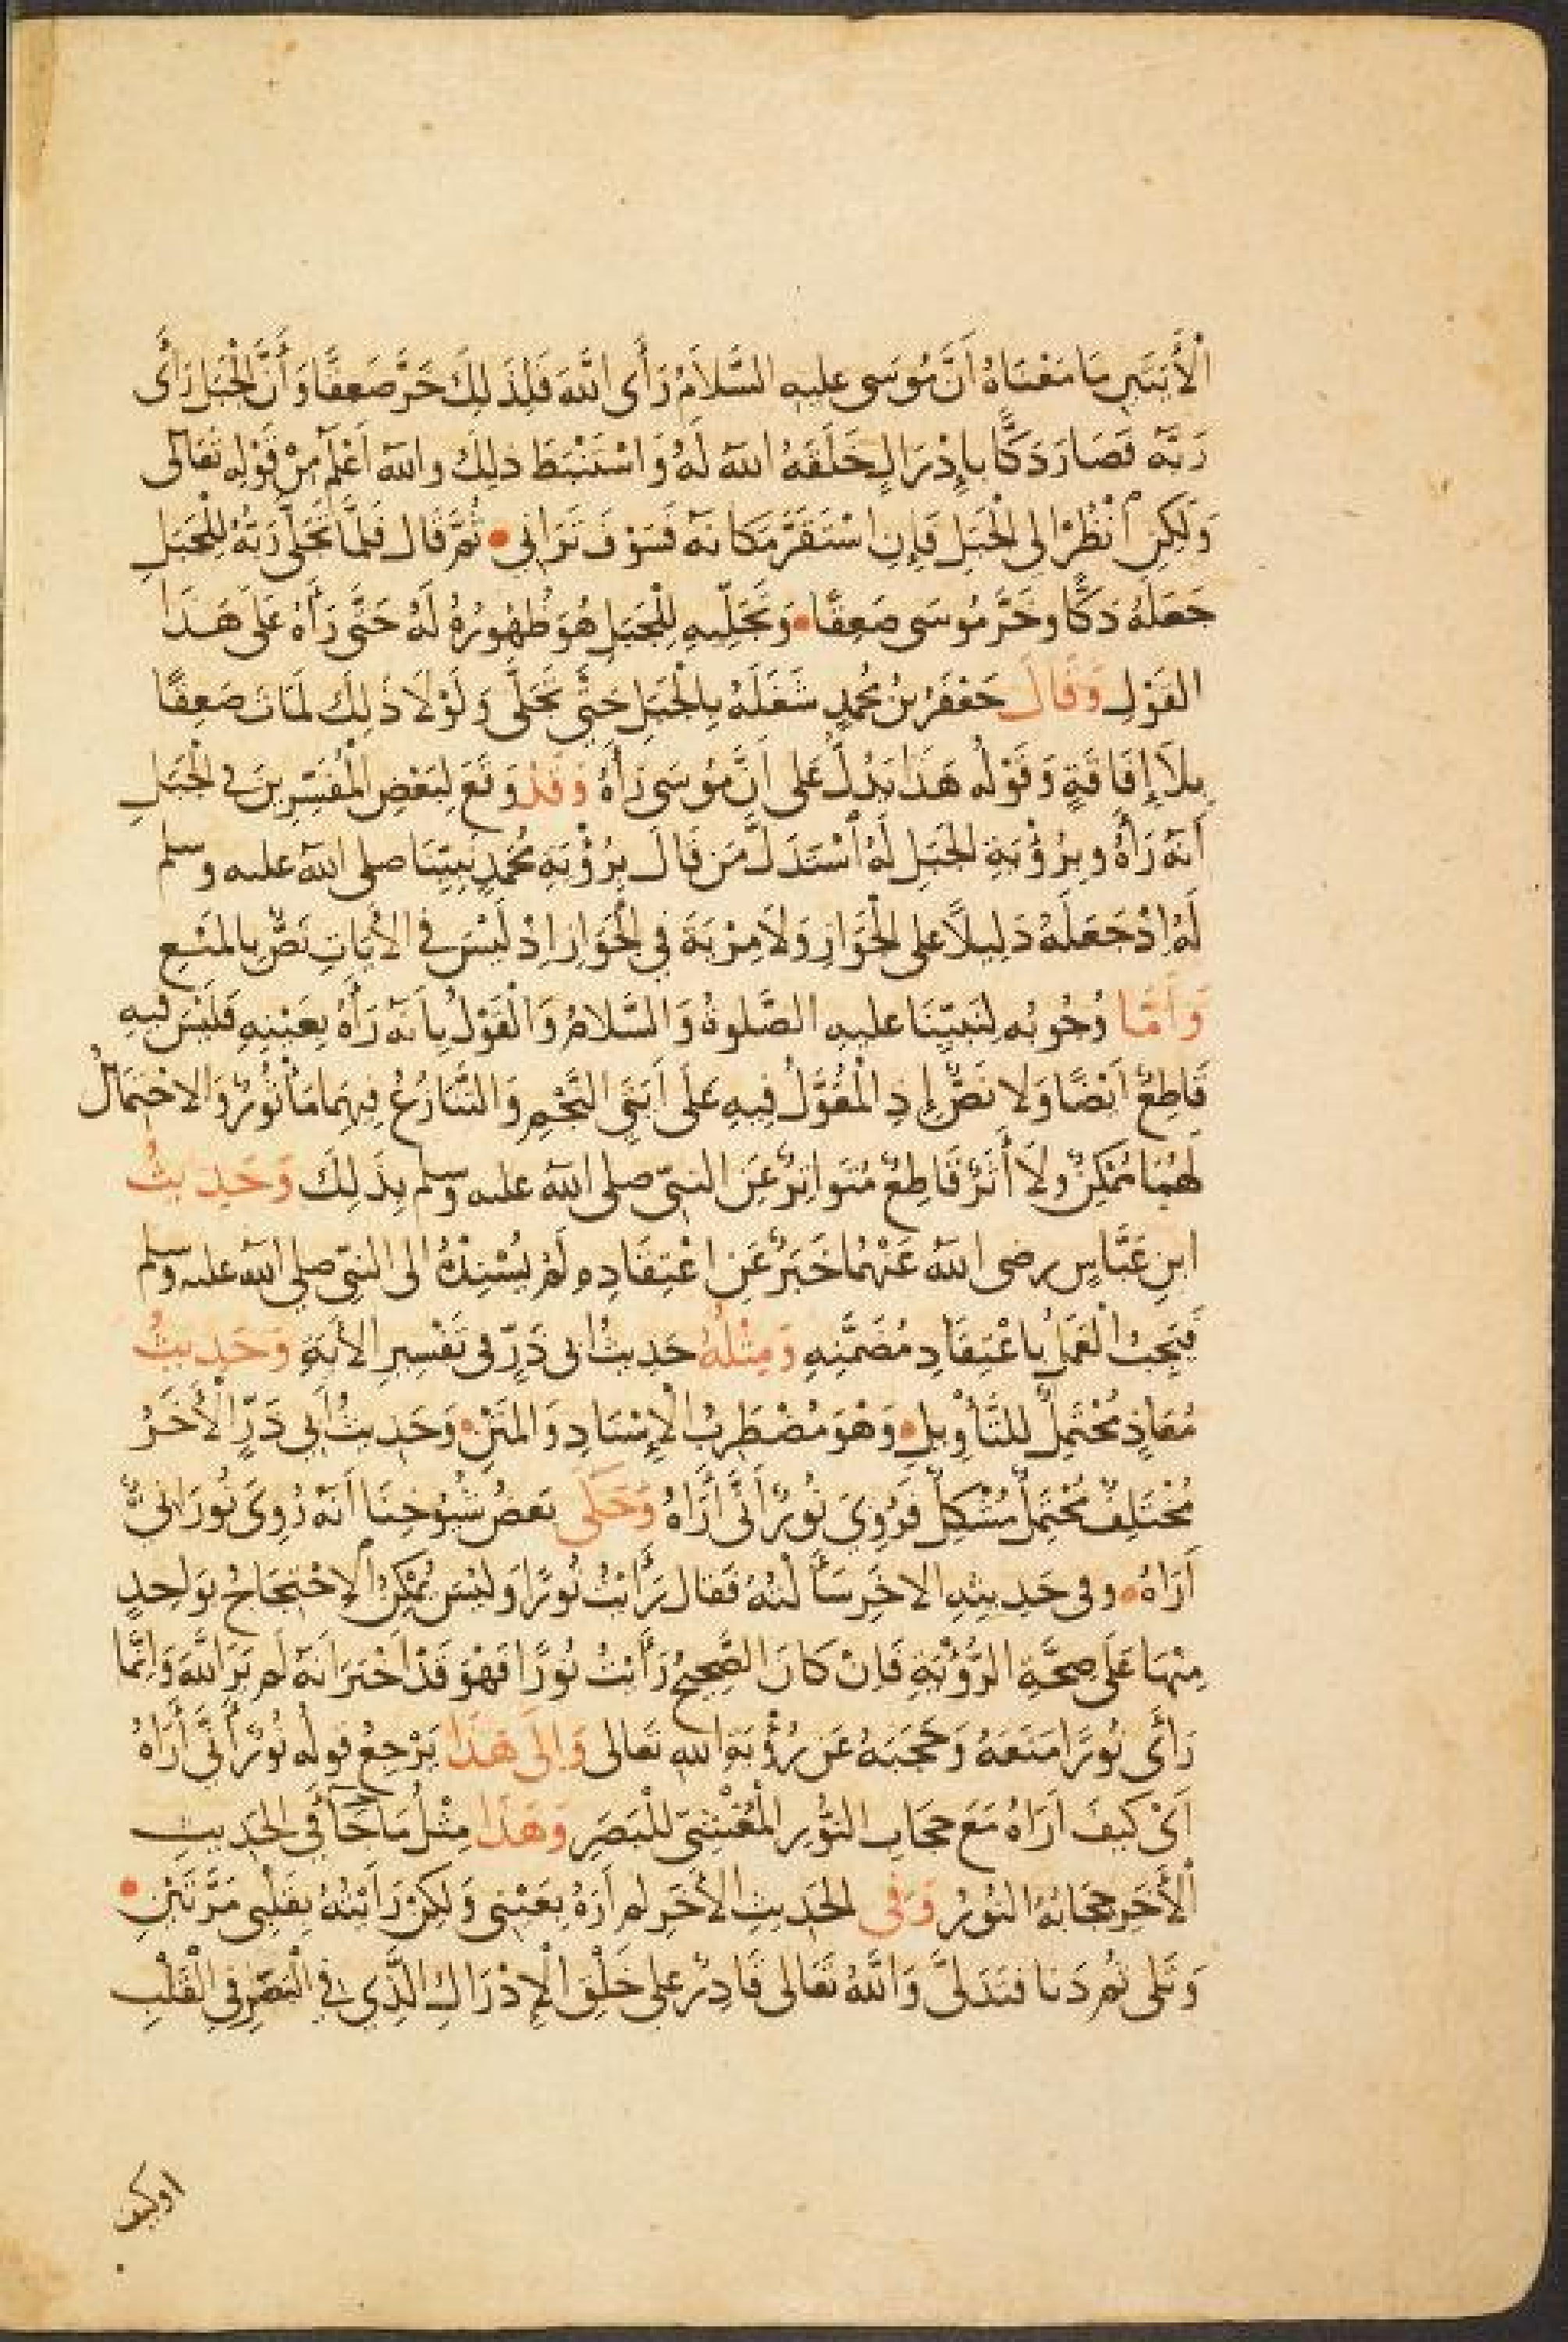 الْأَيَتَيْنِ مَا مَعْنَاهُ اَنَّ مُوسَى عليهِ السَّلاَمُ رَأَى اللّٰهَ فَلِذَلِكَ خَرَّ صَعِقًا وَأَنَّ الْجَبَلَ رَأَى
رَبَّهُ فَصَارَ دَكًّا بِإِدْرَاكٍ خَلَقَهُ اللّٰهُ لَهُ وَاسْتَنْبَطَ ذلِكَ واللّٰه اَعْلَمُ مِنْ قَوْلِهِ تَعَالَى
وَلَكِنِ اُنْظُرْ الى الْجَبَلِ فَإِنِ اسْتَقَرَّ مَكَانَهُ فَسَوْفَ تَرَانِي • ثُمَّ قَال فَلَمَّا تَجَلَّى رَبُّهُ لِلْجَبَلِ
جَعَلَهُ دَكًّا وخَرَّ مُوسَى صَعِقًا • وَتَجَلِّيهِ لِلْجَبَلِ هُوَ ظُهُورُهُ لَهُ حَتَّى رَأهُ عَلَى هَذَا
القَوْلِ وَقَالَ جَعْفَرُ بْنُ مُحَمدٍ شَغَلَهُ بِالْجَبَلِ حَتَّى تَجَلَّى وَلَوْلَا ذَلِكَ لَمَاتَ صَعِقًا
بِلَا إِفَاقَةٍ وَقَوْلُه هَذَا يَدُلُّ عَلى اَنَّ مُوسَى رَأَهُ وَقَدْ وَقَعَ لِبَعْضِ الْمُفَسِّرِينَ فى الْجَبَلِ
اَنَّهُ رَأَهُ وبِرُؤْيَةِ الجَبَلِ لَهُ اسْتَدَلَّ مَن قَالَ بِرُؤْيَةِ مُحَمدٍ نَبِيِّنَا صلى اللّٰه عليه وسلم
لَهُ اذْ جَعَلَهُ دَلِيلاً على الْجَوَازِ وَلاَ مِرْيَةَ فِي الْجَوَازِ اذْ لَيْسَ فى الأيَاتِ نَصٌّ بِالمَنْعِ
وَاَمَّا وُجُوبُه لِنَبِيِّنَا عليهِ الصَّلوةُ وَالسَّلاَمُ وَالْقَوْلُ بِاَنَّهُ رَأَهُ بِعَيْنِهِ فَلَيْسَ فيهِ
قَاطِعٌ اَيْضًا وَلا نَصٌّ إِذِ الْمُعَوَّلُ فِيهِ عَلَى اَيَتَيِ النَّجْمِ وَالتَّنَازُعُ فِيهِمَا مَأْثُورٌ وَالاحْتِمَالُ
لَهُمَا مُمْكِنٌ ولَا أَثَرٌ قَاطِعٌ مُتَوَاتِرٌ عَنِ النبىّ صلى اللّٰه عليه وسلم بِذَلِكَ وَحَدِيثُ
ابنِ عَبَّاسٍ رضى اللّٰهُ عَنْهُمَا خَبَرٌ عَنِ اعْتِقَادِهِ لَمْ يُسْنِدْهُ الى النبىّ صلى اللّٰه عليه وسلم
فَيَجِبُ الْعَمَلُ بِاعْتِقَادِ مُضَمَّنِهِ وَمِثْلُهُ حَدِيثُ ابى ذَرٍّ فى تَفْسِيرِ الاٰيَةِ وَحَدِيثُ
مُعَاذٍ مُحْتَمِلٌ للتَّأْوِيلِ • وَهُوَ مُضْطَرِبُ الْإِسْنَادِ وَالمَتْنِ • وَحَدِيثُ اَبِى ذَرٍّ الْأَخَرُ
مُخْتَلِفٌ مُحْتَمِلٌ مُشْكِلٌ فَرُوِيَ نُورٌ اَنَّى أَرَاهُ وَحَكَى بَعضُ شُيُوخِنَا اَنَّهُ رُوِىَ نُورَانِىٌّ
اَرَاهُ • وفى حَدِيثِهِ الاخَرِ سَأَلْتُهُ فَقال رَأَيْتُ نُورًا وَلَيْسَ يُمْكِنُ الاِحْتِجَاجُ بِوَاحِدٍ
مِنْهَا عَلَى صِحَّةِ الرُّؤْيَةِ فَاِنْ كَانَ الصَّحِيحُ رَأَيْتُ نُورًا فَهُوَ قَدْ اَخْبَرَ اَنَّهُ لَم يَرَ اللّٰهَ وَاِنَّمَا
رَأَى نُورًا مَنَعَهُ وَحَجَبَهُ عَن رُؤْيَةِ اللّٰهِ تَعَالى وَاِلَى هَذَا يَرْجِعُ قولُه نُورٌ أَنَّى أَرَاهُ
اَىْ كَيفَ اَرَاهُ مَعَ حِجَابِ النُّورِ الْمُغَشِّى لِلْبَصَرِ وَهَذَا مِثْلُ مَا جَآءَ فِى الحَدِيثِ
الْأَخَرِ حِجَابُهُ النُورُ وَفى الحَدِيثِ الأَخَرِ لم اَرَهُ بِعَيْنِى وَلَكِنْ رَأَيْتُهُ بِقَلْبِى مَرَّتَيْنِ •
وَتَلى ثم دَنا فتَدَلىَّ وَاللّٰهُ تَعَالى قَادِرٌ على خَلْقِ الْإِدْرَاكِ الَّذِي فى الْبَصَرِ فِى الْقَلْبِ
اوكيف